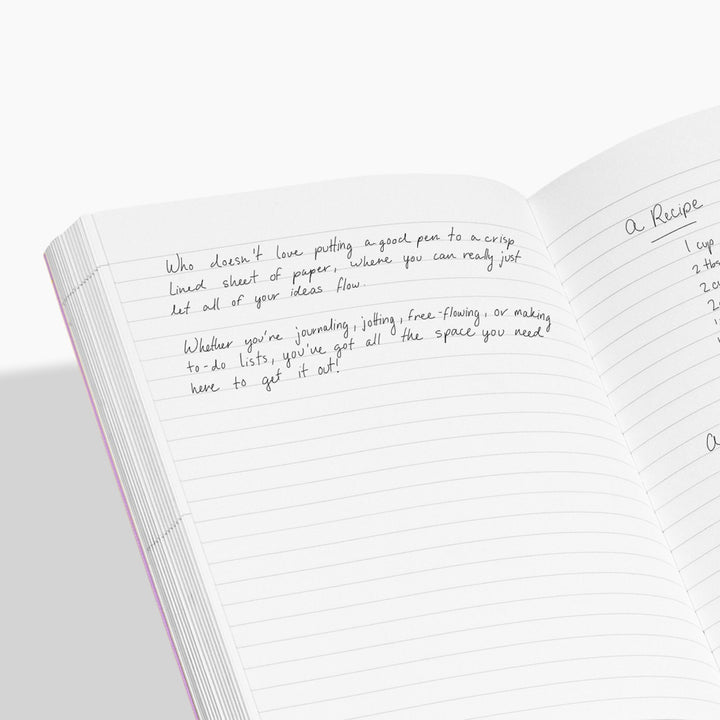 Who doesn't love putting a good pen to a crisp
Lined sheet of paper, where you can really just
let all of your ideas flow.
Whether you're journaling, jotting, free-flowing, or making
to-do lists, you've got all the space you need
here to get it out!
a Recipe
1 cup
2 tbs
2 cu
2
a